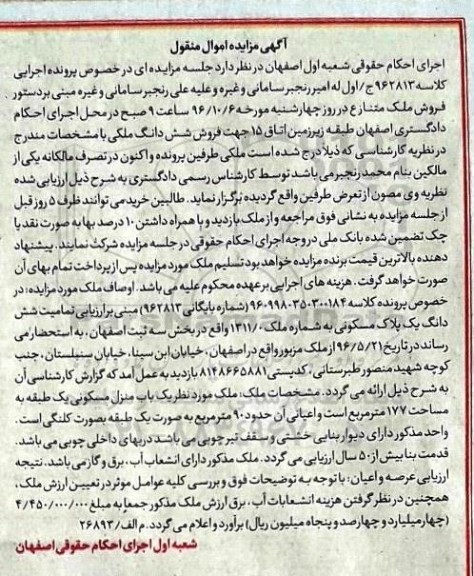 آگهی مزایده اموال منقول
اجرای احکام حقوقی شعبه اول اصفهان در نظر دارد جلسه مزایده ای در خصوص پرونده اجرایی
کلاسه ۹۶۲۸۱۳ج/اول له امیر رنجبر سامانی و غیره و علیه علی رنجبر سامانی و غیره مبنی بر دستور
فروش ملک متنازع در روز چهارشنبه مورخه ۹۶/۱۰/۶ ساعت ۹ صبح در محل اجرای احکام
دادگستری اصفهان طبقه زیرزمین اتاق ۱۵ جهت فروش شش دانگ ملکی با مشخصات مندرج
در نظریه کارشناسی که ذیلا درج شده است ملکی طرفین پرونده و اکنون در تصرف مالکانه یکی از
مالکین بنام محمد رنجبر می باشد توسط کارشناس رسمی دادگستری به شرح ذیل ارزیابی شده
نظریه وی مصون از تعرض طرفین واقع گردیده برگزار نماید. طالبین خرید می توانند ظرف ۵ روز قبل
از جلسه مزایده به نشانی فوق مراجعه و از ملک بازدید و با همراه داشتن ۱۰ درصد بها به صورت نقد یا
چک تضمین شده بانک ملی در وجه اجرای احکام حقوقی در جلسه مزایده شرکت نمایند. پیشنهاد
دهنده بالاترین قیمت برنده مزایده خواهد بود تسلیم ملک مورد مزایده پس از پرداخت تمام بهای آن
صورت خواهد گرفت. هزینه های اجرایی بر عهده محکوم علیه می باشد. اوصاف ملک مورد مزایده: در
خصوص پرونده کلاسه ۹۶۰۹۹۸۰۳۵۰۳۰۰۱۸۴ (شماره بایگانی ۹۶۲۸۱۳) مبنی بر ارزیابی تمامیت شش
دانگ یک پلاک مسکونی به شماره ملک ۱۳۱۱/۰ واقع در بخش سه ثبت اصفهان، به استحضار می
رساند در تاریخ ۹۶/۵/۲۱ از ملک مزبور واقع در اصفهان، خیابان ابن سینا، خیابان سنبلستان، جنب
کوچه شهید منصور طبرستانی، کدپستی ۸۱۴۸۶۶۵۸۸۱ بازدید به عمل آمد که گزارش کارشناسی آن
به شرح ذیل ارائه می گردد. مشخصات ملک: ملک مورد نظر یک باب منزل مسکونی یک طبقه به
مساحت ۱۷۷ مترمربع است و اعیانی آن حدود ۹۰ مترمربع به صورت یک طبقه بصورت کلنگی است.
واحد مذکور دارای دیوار بنایی خشتی و سقف تیر چوبی می باشد درهای داخلی چوبی می باشد.
قدمت بنا بیش از ۵۰ سال ارزیابی می گردد. ملک مذکور دارای انشعاب آب، برق و گاز می باشد. نتیجه
ارزیابی عرصه و اعیان: با توجه به توضیحات فوق و بررسی کلیه عوامل موثر در تعیین ارزش ملک،
همچنین در نظر گرفتن هزینه انشعابات آب، برق ارزش ملک مذکور جمعا به مبلغ ۴/۴۵۰/۰۰۰/۰۰۰
(چهار میلیارد و چهارصد و پنجاه میلیون ریال) برآورد و اعلام می گردد. م الف/۲۶۸۹۳
شعبه اول اجرای احکام حقوقی اصفهان